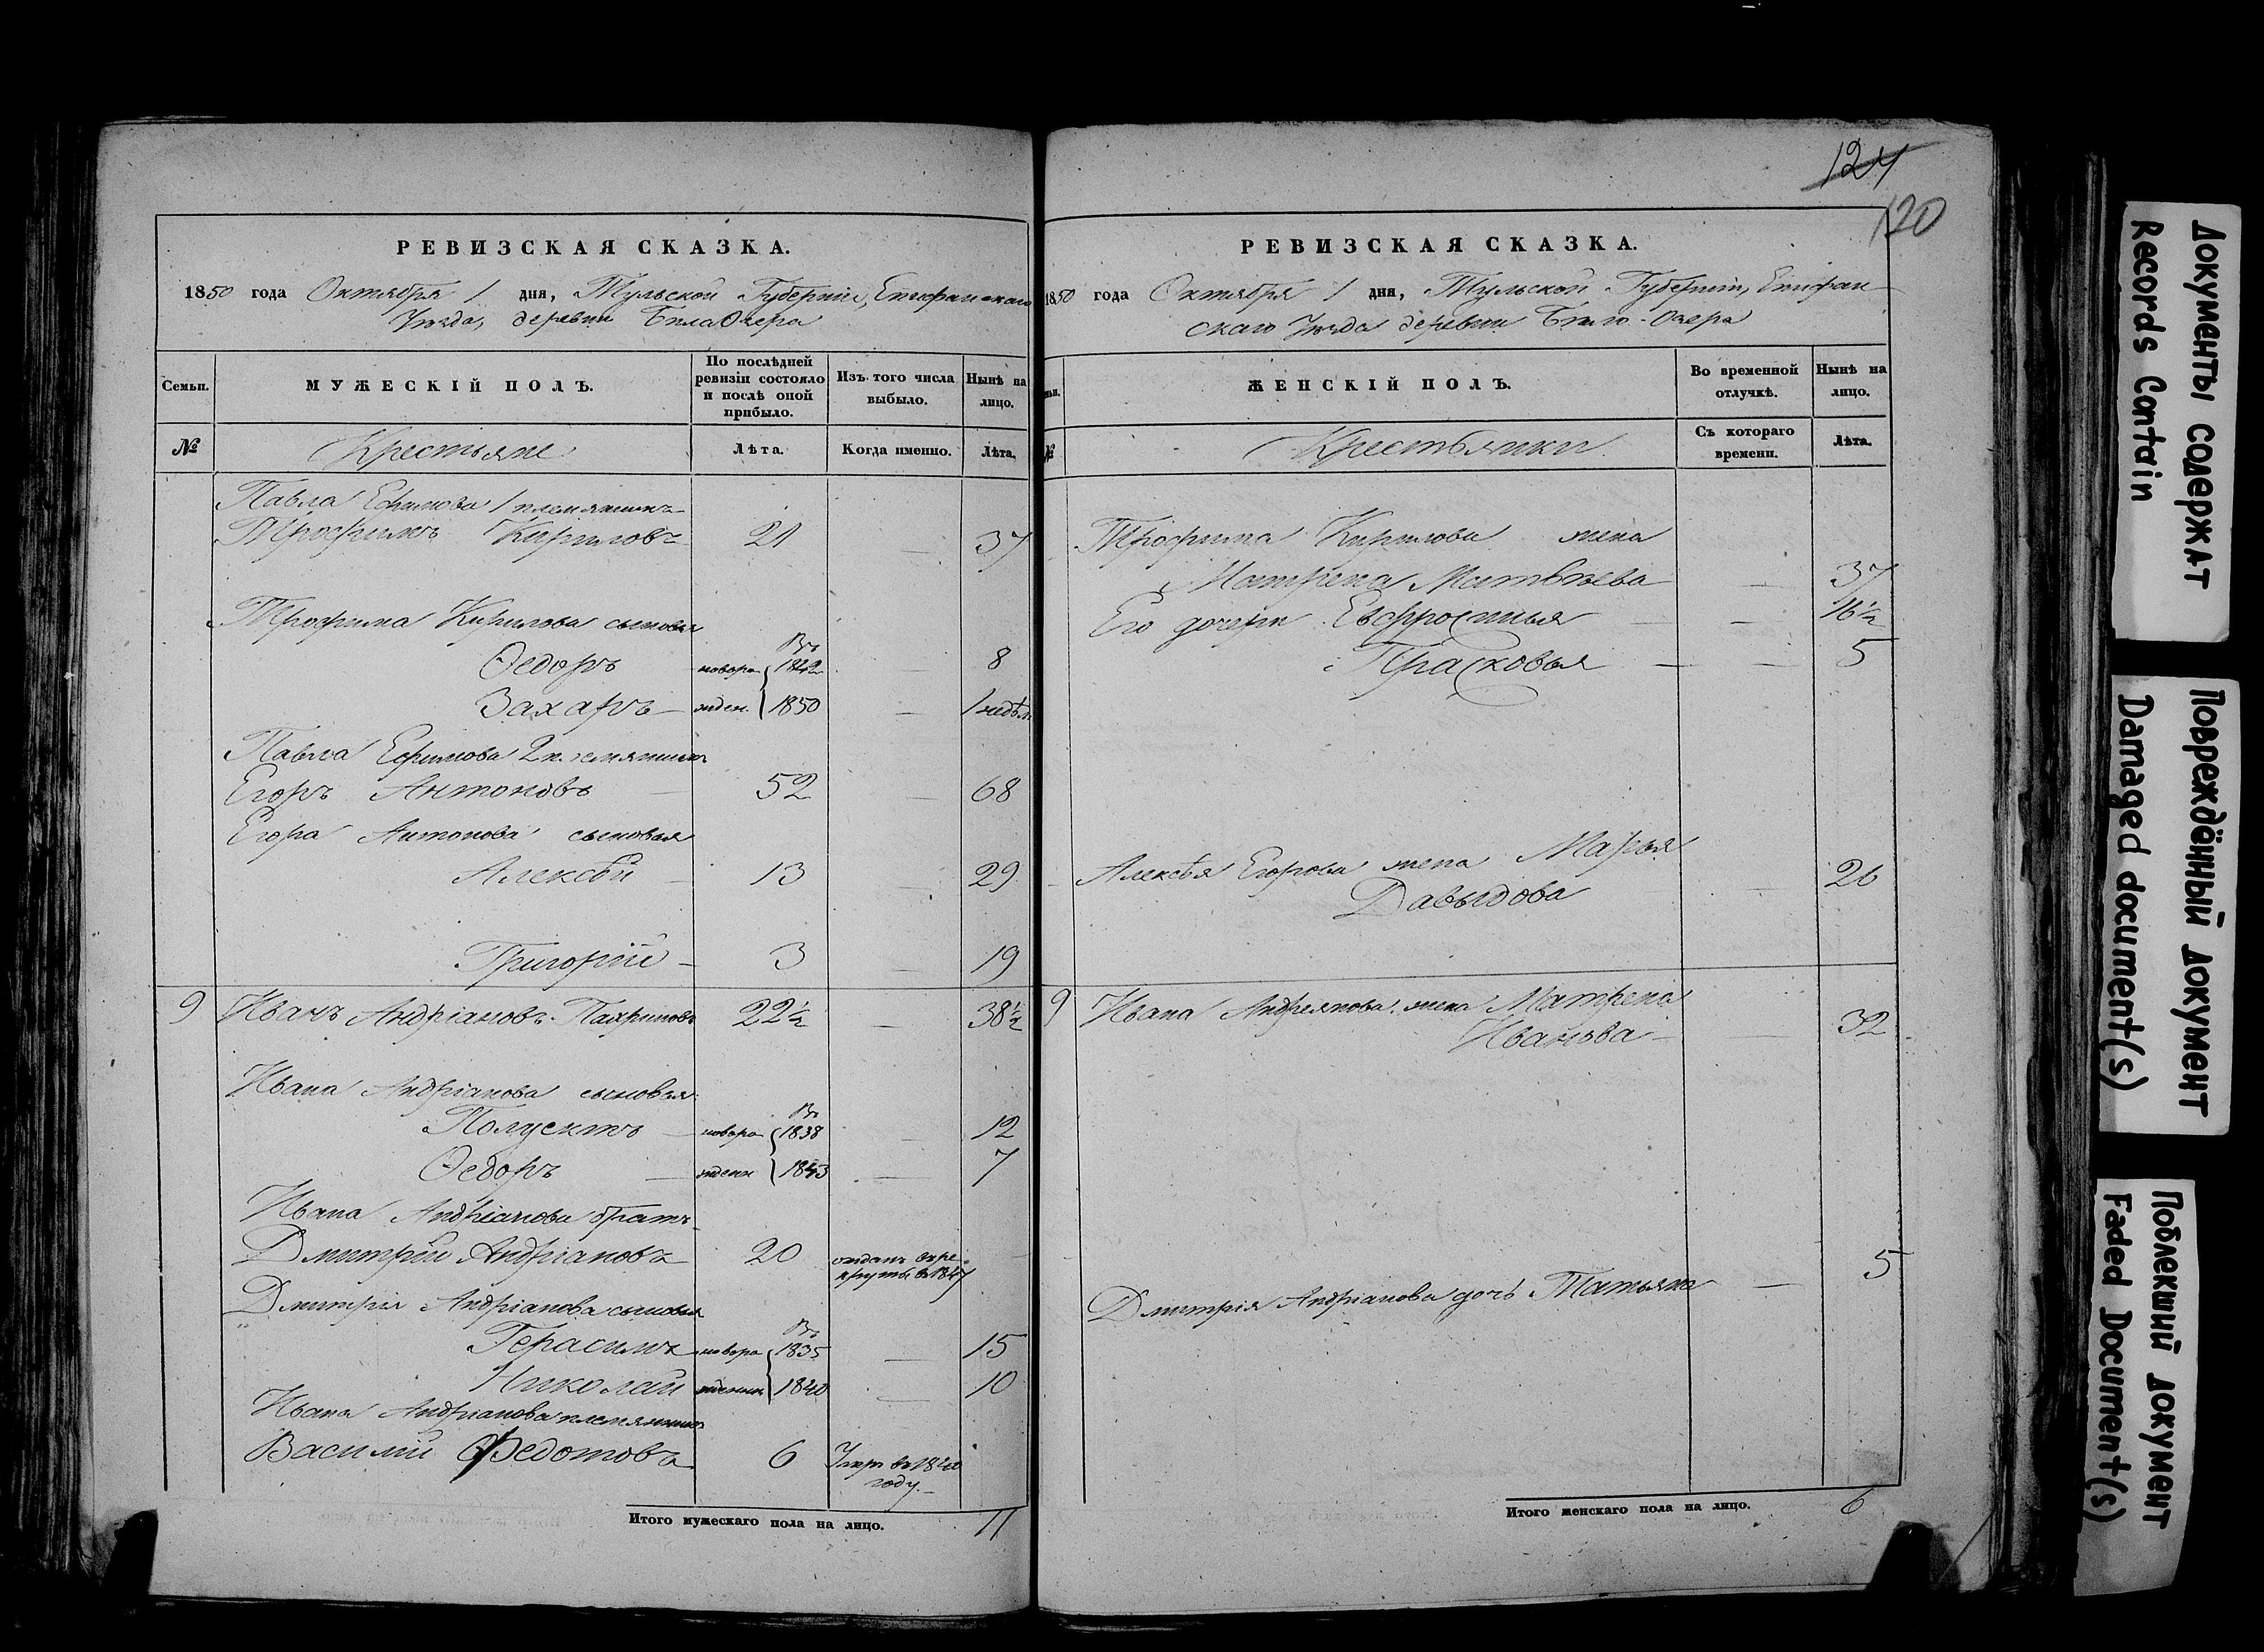 124
120
РЕВИЗСКАЯ СКАЗКА.
1850 года Октября 1 дня, Тульской Губерніи, Епифанскаго
Уѣзда, деревни Бѣла Озера
Семьи.
МУЖЕСКІЙ ПОЛЪ.
По послѣдней ревизіи состояло и послѣ оной прибыло.
Изъ того числа выбыло.
Нынѣ на лицо.
№
Крестьяне
Лѣта.
Когда именно.
Лѣта.
Павла Ефимова 1 племянникъ
Трофимъ Кириловъ 21 — 37
Трофима Кирилова сыновья
Въ
Ѳедоръ новоро 1842 8
Захаръ — жден. 1850 — 1 недѣл.
Павла Ефимова 2 племянникъ
Егоръ Антоновъ — 52 — 68
Егора Антонова сыновья
Алексѣй — 13 — 29
Григорій — 3 — 19
9 Иванъ Андріановъ Пахриновъ 22½ — 38½
Ивана Андріанова сыновья
Въ
Полуектъ — новоро 1838 — 12
Ѳедоръ — жден 1843 — 7
Ивана Андріанова братъ
Дмитрій Андріановъ 20 отданъ въ ре-
круты въ 1847
Дмитрія Андріанова сыновья
Въ
Герасимъ новоро 1835 — 15
Николай жденн 1840 — 10
Ивана Андріанова племянникъ
Василій Ѳедотовъ 6 Умеръ въ 1840
году.
Итого мужескаго пола на лицо. 11
РЕВИЗСКАЯ СКАЗКА.
1850 года Октября 1 дня, Тульской Губерніи, Епифан-
скаго Уѣзда деревни Бѣло-Озера
ьи.
ЖЕНСКІЙ ПОЛЪ.
Во временной отлучкѣ.
Нынѣ на лицо.
№
Крестьянки
Съ котораго времени.
Лѣта.
Трофима Кирилова жена
Матрена Матвѣева — 37
Его дочери Евфросинья — — 16½
Прасковья — — 5
Алексѣя Егорова жена Марья
Давыдова — 26
9 Ивана Андреянова жена Матрена
Иванова — — 32
Дмитрія Андріанова дочь Татьяна — 5
Итого женскаго пола на лицо. 6
Документы содержат
Records Contain
Повреждённый документ
Damaged document(s)
Поблекший документ
Faded Document(s)